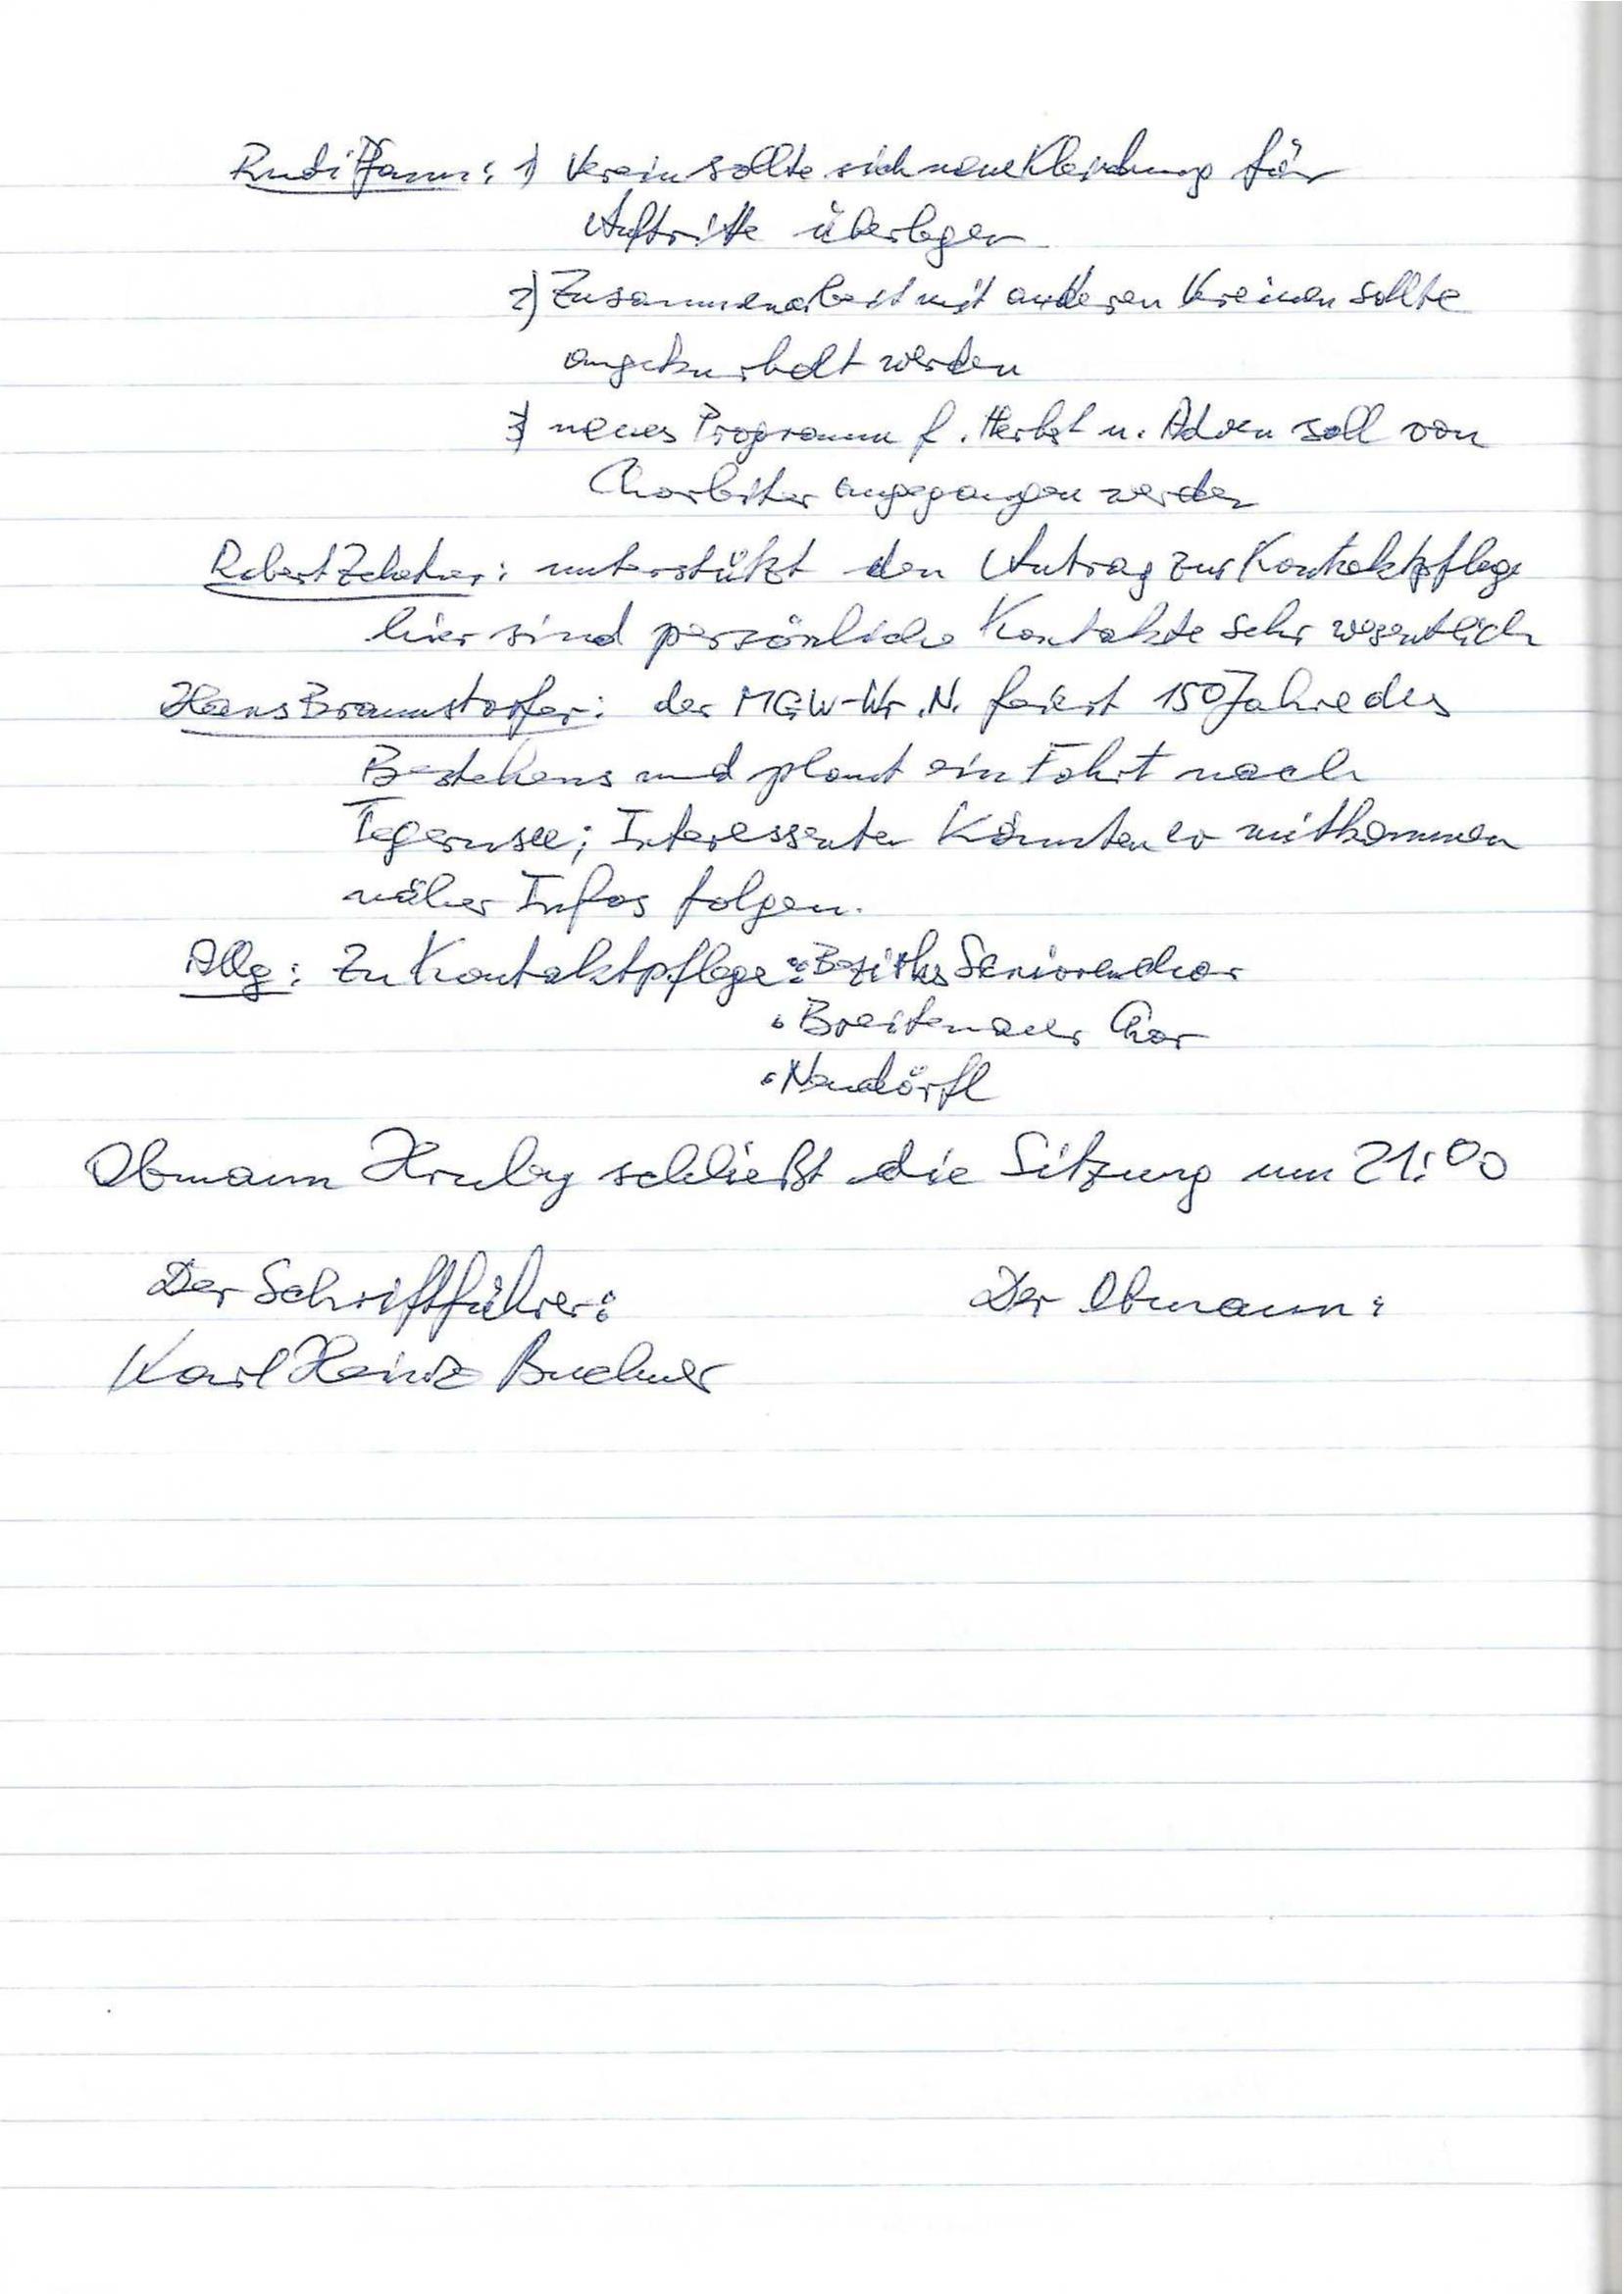 Rudi Pfann: 1) Verein sollte sich neue Kleidung für
Auftritte überlegen
2) Zusammenarbeit mit anderen Vereinen sollte
angekurbelt werden
3) neues Programm f. Herbst u. Adven soll von
Chorleiter angegangen werden
Robert: unterstützt den Antrag zur Kontaktpflege
hier sind persönliche Kontakte sehr wesentlich
Hans Braunstorfer: der MGW-Wr.N. feiert 150 Jahre des
Bestehens und plant ein Fahrt nach
Tegernsee; Interessenten könnten ev mitkommen
näher Infos folgen.
Allg: Zu Kontaktpflege: • Bezirks Seniorenchor
• Breitenauer Chor
• Neudörfl
Obmann Hruby schließt die Sitzung um 21:00
Der Schriftführer: Der Obmann:
Karl Heinz Buchner